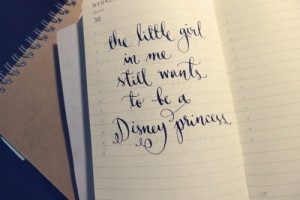 30
the little girl
in me
still wants
to be a
Disney princess